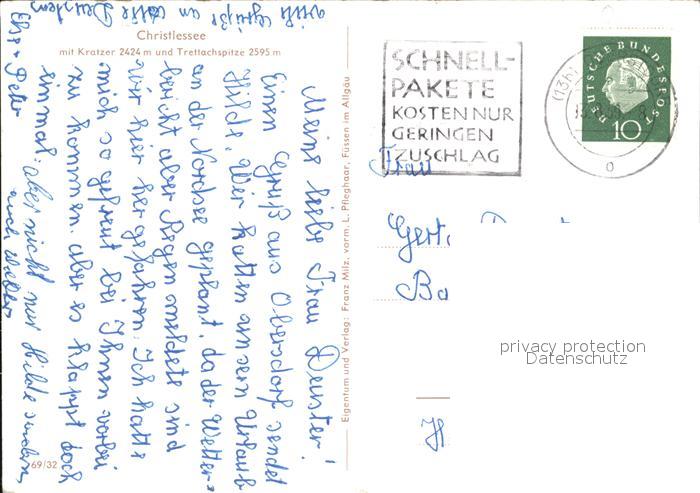 Christlessee
mit Kratzer 2424 m und Trettachspitze 2595 m
Meine liebe Frau Deuster!
Einen Gruß aus Oberstdorf sendet
Hilde. Wir hatten unsern Urlaub
an der Nordsee geplant, da der Wetter=
bericht aber Regen meldete sind
wir hier her gefahren. Ich hatte
mich so gefreut bei Ihnen vorbei
zu kommen. aber es klappt doch
einmal. aber nicht nur Hilde sondern
auch Walter
Ehr. Peter
viele Grüße an alle Deusters
69/32
Eigentum und Verlag: Franz Milz, vorm. L. Pfleghaar, Füssen im Allgäu
SCHNELL-
PAKETE
KOSTEN NUR
GERINGEN
ZUSCHLAG
(13b)
DEUTSCHE BUNDESPOST
10
Frau
Gert
Ba
privacy protection
Datenschutz